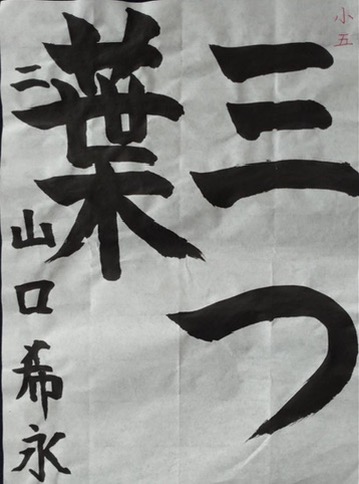 小五
三つ
葉
二 山口希永